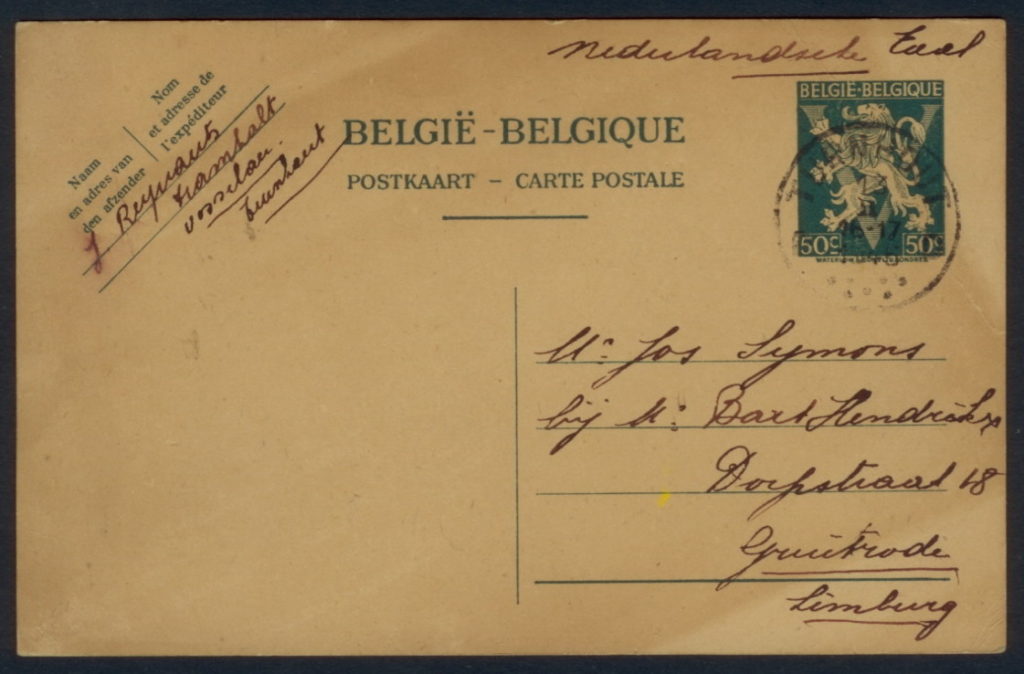 Nederlandsche Taal
Nom
et adresse de
l'expéditeur
Naam
en adres van
den afzender
J Reypaarts
tramhalt
vosselaar.
turnhout
BELGIË-BELGIQUE
POSTKAART – CARTE POSTALE
BELGIË-BELGIQUE
50c 50c
16-17
Mr. Jos Symons
bij Mr. Bart Hendrikx
Dorpstraat 18
Gruitrode
Limburg